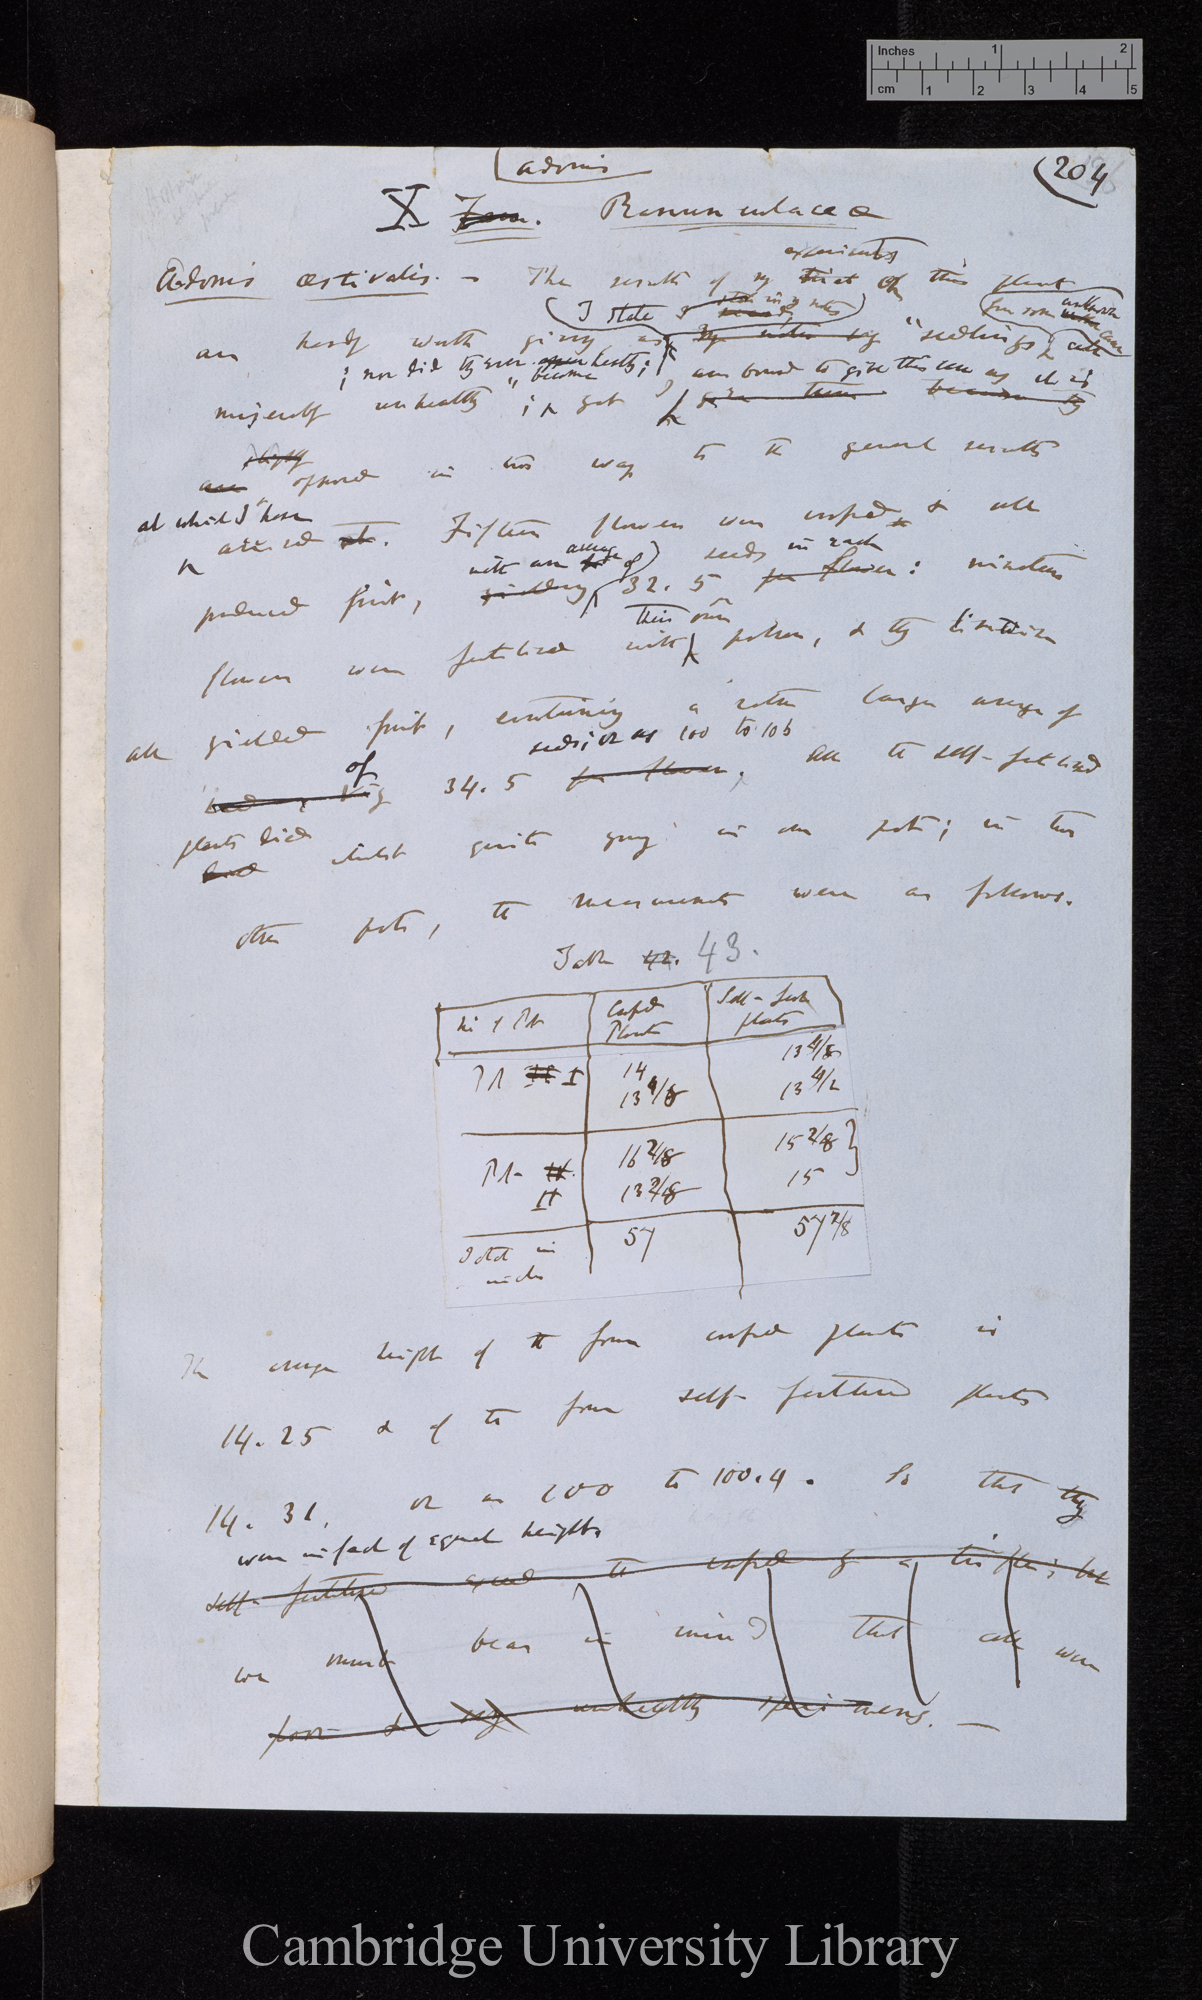 Inches 1 2
cm 1 2 3 4 5
Adonis
204
X Fam. Ranunculaceæ
experiments
Adonis æstivalis. — The results of my trial on this plant
I state in my notes from some unknown cause
are hardly worth giving, as my notes say "seedlings all
; nor did they ever become healthy; am bound to give this case as it is
miserably unhealthy"; yet I
slightly
are opposed in two ways to the general results
at which I have
arrived at. Fifteen flowers were crossed & all
with an average of in each
produced fruit, yielding 32.5 seeds per flower: nineteen
their own
flowers were fertilised with pollen, & they likewise
all yielded fruit, containing a rather larger average of
seeds; or as 100 to 106
of 34.5 per flower, all the self-fertilised
plants died
whilst quite young in one pot; in two
other pots, the measurements were as follows.
Table 42. 43.
No of Pot Crossed Plants Self-fert plants
Pot III I 14 13 4/8
13 4/8 13 4/2
Pot II 16 2/8 15 2/8
13 2/8 15
Total in inches 57 57 2/8
The average height of the four crossed plants is
14.25 & of the four self-fertilised plants
14.31, or as 100 to 100.4. So that they
were in fact of equal heights
self-fertilised exceed the crossed by a trifle; but
we must bear in mind that all were
poor & very unhealthy specimens. —
Cambridge University Library